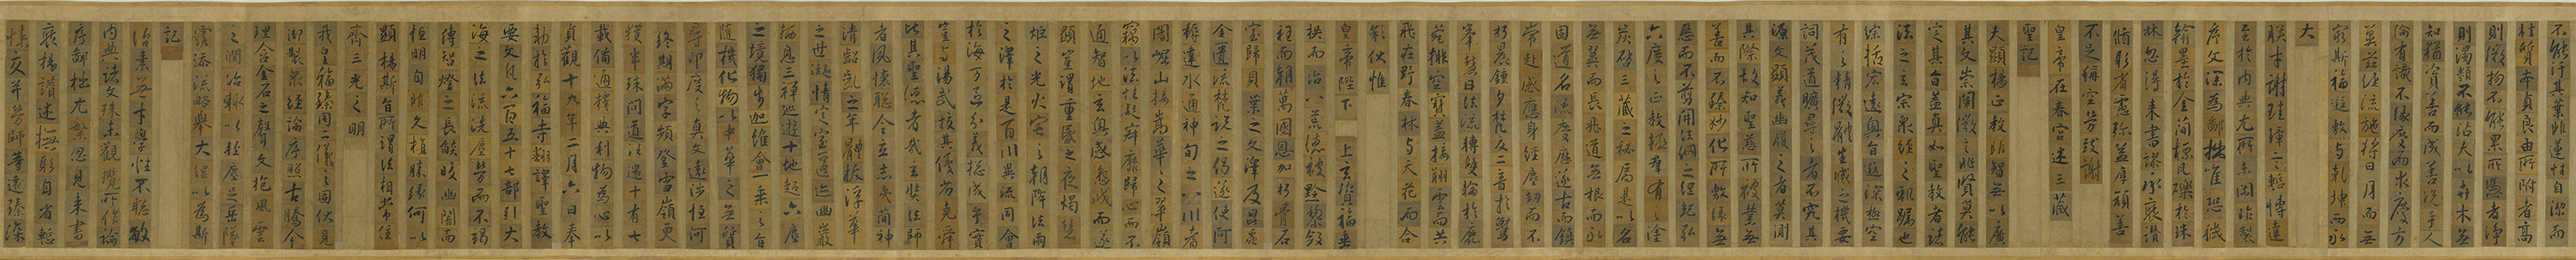 不能汙其葉非蓮性自潔而
桂質本貞良由所附者高
則微物不能累所憑者淨
則濁類不能沾夫以卉木無
知猶資善而成善況乎人
倫有識不緣慶而求慶方
冀茲經流施將日月而無
窮斯福遐敷與乾坤而永
大
朕才謝珪璋言慚博達
至於內典尤所未閑昨製
序文深為鄙拙唯恐穢
翰墨於金簡標瓦礫於珠
林忽得來書謬承褒讚
循躬省慮彌益厚顏善
不足稱空勞致謝
皇帝在春宮述三藏
聖記
夫顯揚正教非智無以廣
其文崇闡微言非賢莫能
定其旨蓋真如聖教者諸
法之玄宗眾經之軌躅也
綜括宏遠奧旨遐深極空
有之精微體生滅之機要
詞茂道曠尋之者不究其
源文顯義幽履之者莫測
其際故知聖慈所被業無
善而不臻妙化所敷緣無
惡而不翦開法網之綱紀弘
六度之正教拯群有之塗
炭啟三藏之秘扃是以名
無翼而長飛道無根而永
固道名流慶歷遂古而鎮
常赴感應身經塵劫而不
朽晨鐘夕梵交二音於鷲
峰慧日法流轉雙輪於鹿
菀排空寶蓋接翔雲而共
飛莊野春林與天花而合
彩伏惟
皇帝陛下上玄資福垂
拱而治八荒德被黔黎斂
衽而朝萬國恩加朽骨石
室歸貝葉之文澤及昆蟲
金匱流梵說之偈遂使阿
耨達水通神甸之八川耆
闍崛山接嵩華之翠嶺
竊以法性凝寂靡歸心而不
通智地玄奧感懇誠而遂
顯豈謂重昏之夜燭慧
炬之光火宅之朝降法雨
之澤於是百川異流同會
於海萬區分義總成乎實
豈與湯武校其優劣堯舜
比其聖德者哉玄奘法師
者夙懷聰令立志夷簡神
清齠齔之年體拔浮華
之世凝情定室匿跡幽巖
栖息三禪巡遊十地超六塵
之境獨步迦維會一乘之旨
隨機化物以中華之無質
尋印度之真文遠涉恒河
終期滿字頻登雪嶺更
獲半珠問道往還十有七
載備通釋典利物為心以
貞觀十九年二月六日奉
勅於弘福寺翻譯聖教
要文凡六百五十七部引大
海之法流洗塵勞而不竭
傳智燈之長焰皎幽闇而
恒明自非久植勝緣何以
顯揚斯旨所謂法相常住
齊三光之明
我皇福臻同二儀之固伏見
御製眾經論序照古騰今
理含金石之聲文抱風雲
之潤治輒以輕塵足岳墜
露添流略舉大綱以為斯
記
治素無才學性不聰敏
內典諸文殊未觀攬所作論
序鄙拙尤繁忽見來書
褒揚讚述撫躬自省慚
悚交并勞師等遠臻深